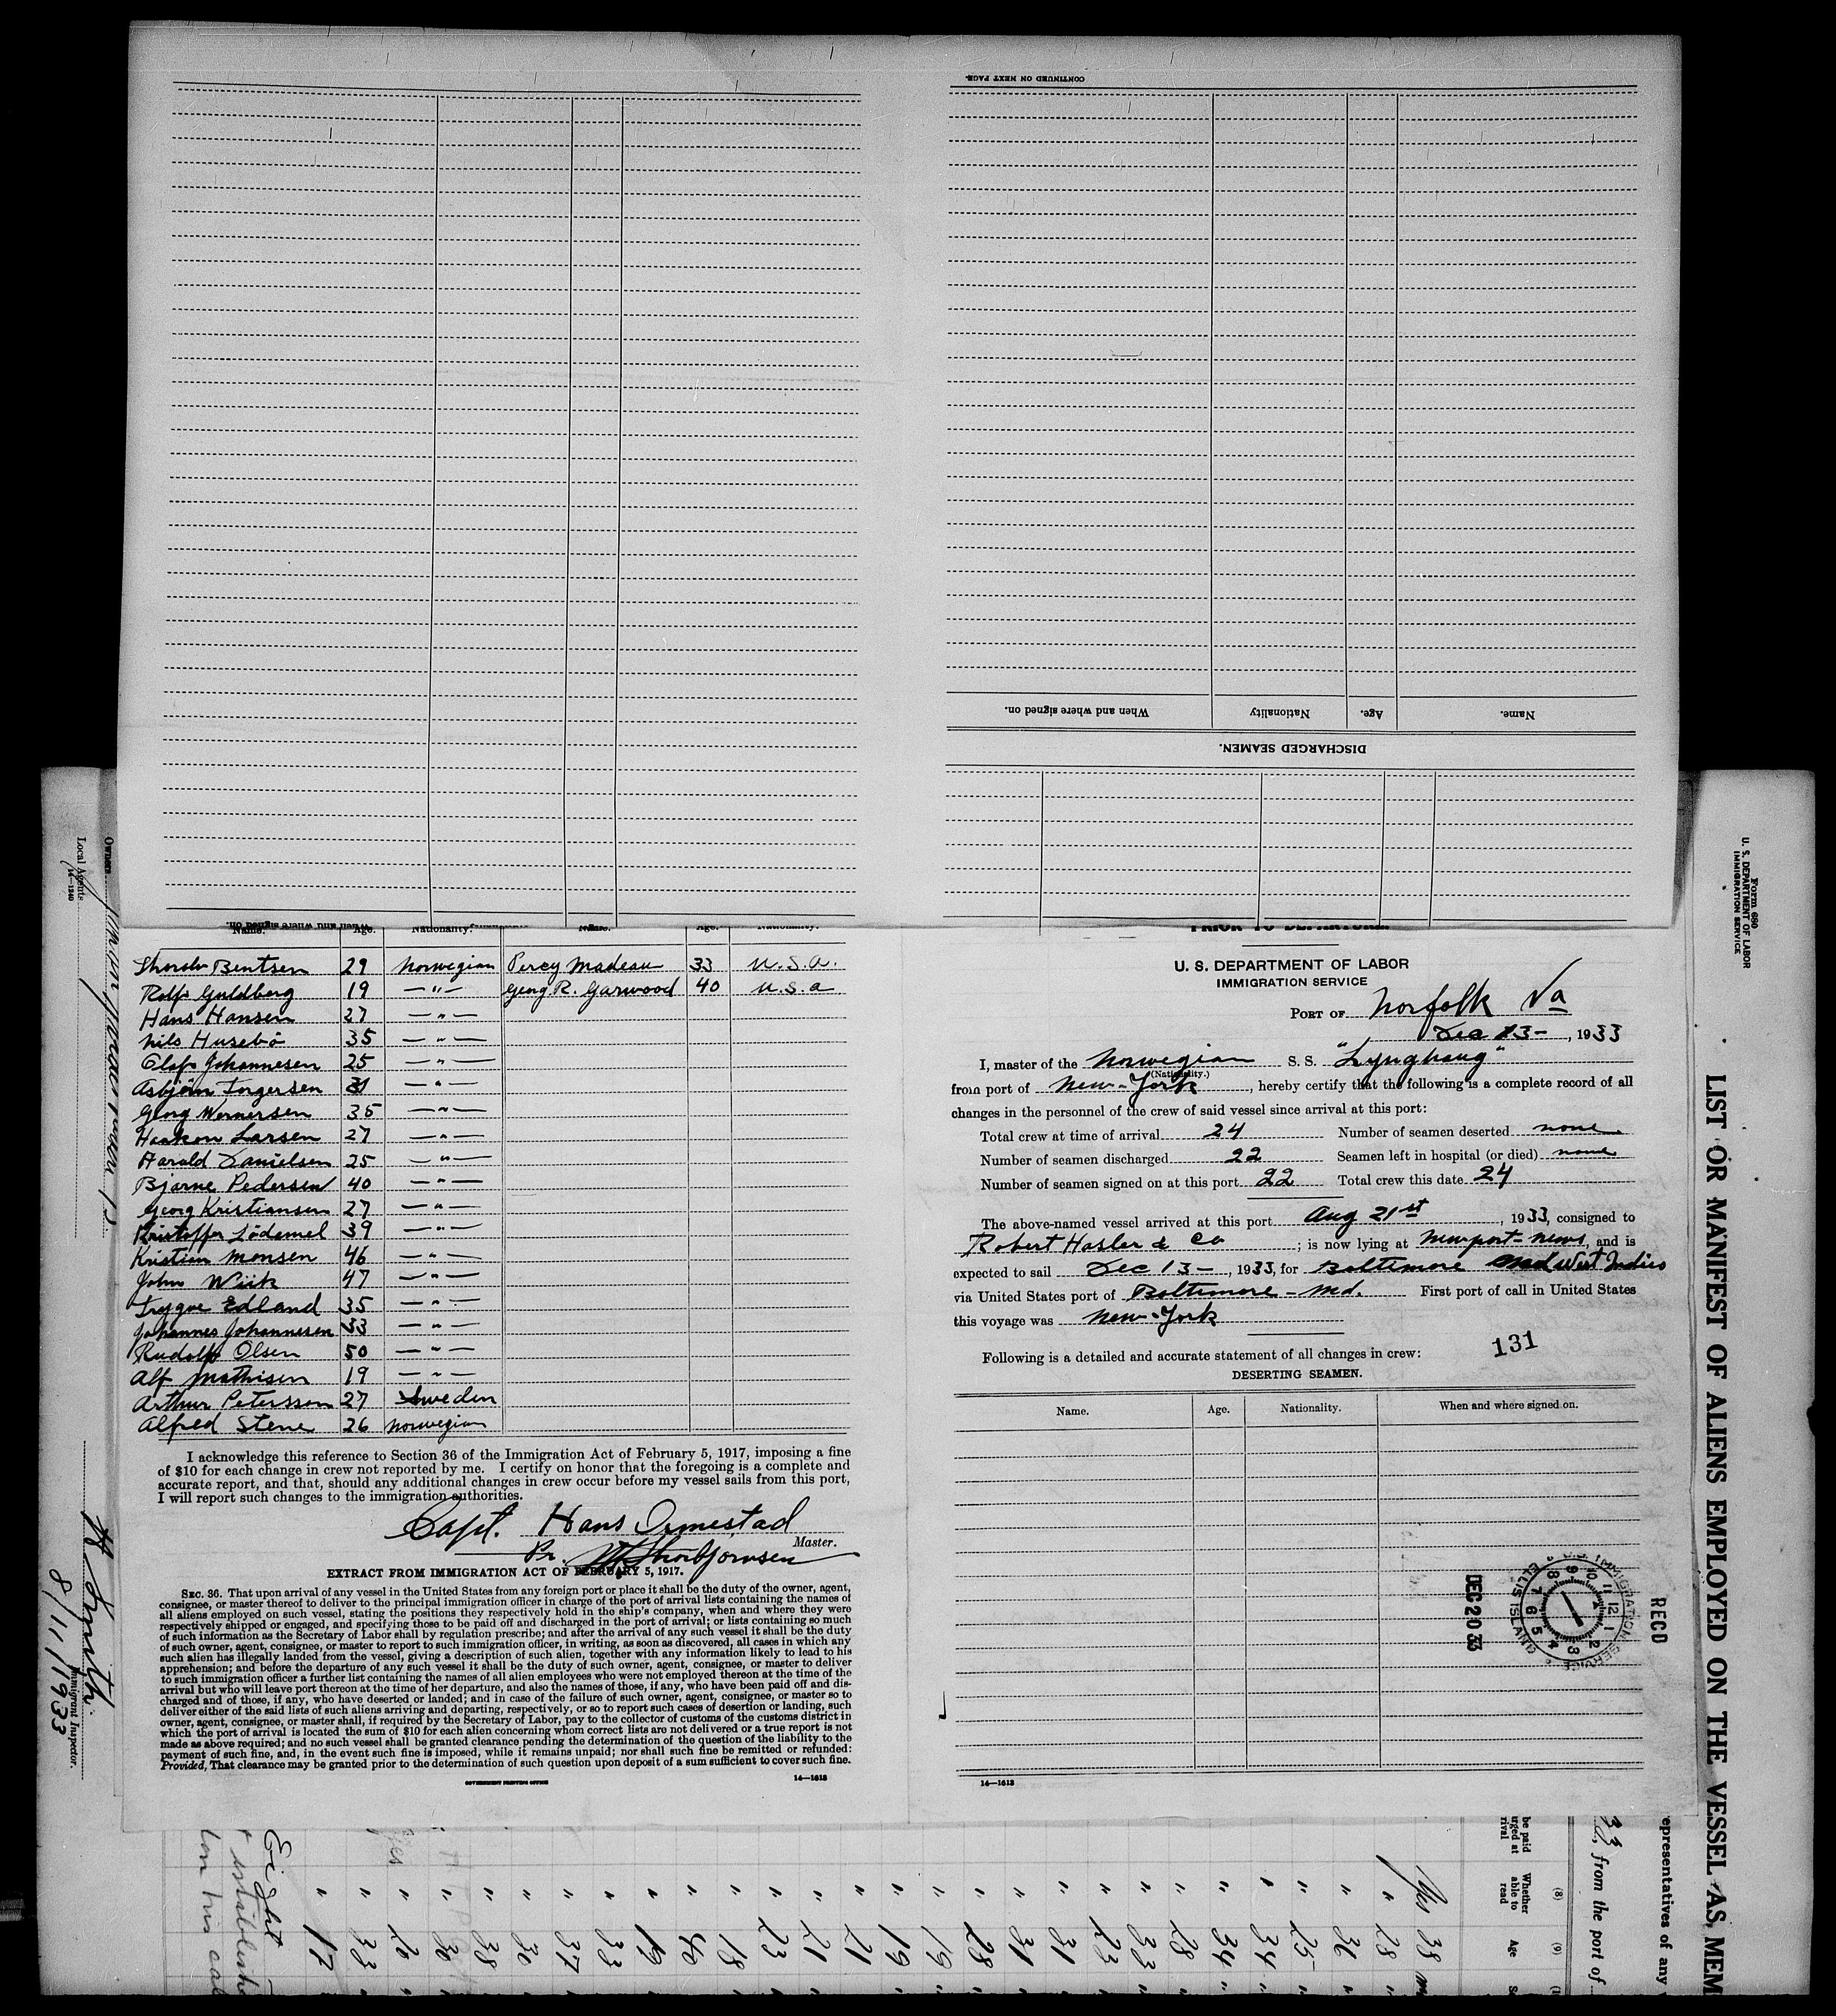 CONTINUED ON NEXT PAGE.
When and where signed on.
Nationality
Age.
Name.
DISCHARGED SEAMEN.
When and where signed on.
Name. Age. Nationality. Name. Age. Nationality.
Bentsen 29 Norwegian Percy Madeau 33 U.S.A.
Rolf Guldberg 19 —"— Georg. R. Garwood 40 U.S.A
Hans Hansen 27 —"—
Nils Husebö 35 —"—
Olaf Johannesen 25 —"—
Asbjörn Ingersen 31 —"—
Georg Wernersen 35 —"—
Haakon Larsen 27 —"—
Harald Danielsen 25 —"—
Bjarne Pedersen 40 —"—
Georg Kristiansen 27 —"—
Kristoffer Lödemel 39 —"—
Kristian Monsen 46 —"—
John Wiik 47 —"—
Trygve Edland 35 —"—
Johannes Johannesen 33 —"—
Rudolf Olsen 50 —"—
Alf Mathisen 19 —"—
Arthur Petersson 27 Sweden
Alfred Stene 26 Norwegian
I acknowledge this reference to Section 36 of the Immigration Act of February 5, 1917, imposing a fine
of $10 for each change in crew not reported by me. I certify on honor that the foregoing is a complete and
accurate report, and that, should any additional changes in crew occur before my vessel sails from this port,
I will report such changes to the immigration authorities.
Capt. Hans Ormestad
Master.
Pr. Thorbjornsen
EXTRACT FROM IMMIGRATION ACT OF FEBRUARY 5, 1917.
SEC. 36. That upon arrival of any vessel in the United States from any foreign port or place it shall be the duty of the owner, agent,
consignee, or master thereof to deliver to the principal immigration officer in charge of the port of arrival lists containing the names of
all aliens employed on such vessel, stating the positions they respectively hold in the ship's company, when and where they were
respectively shipped or engaged, and specifying those to be paid off and discharged in the port of arrival; or lists containing so much
of such information as the Secretary of Labor shall by regulation prescribe; and after the arrival of any such vessel it shall be the duty
of such owner, agent, consignee, or master to report to such immigration officer, in writing, as soon as discovered, all cases in which any
such alien has illegally landed from the vessel, giving a description of such alien, together with any information likely to lead to his
apprehension; and before the departure of any such vessel it shall be the duty of such owner, agent, consignee, or master to deliver
to such immigration officer a further list containing the names of all alien employees who were not employed thereon at the time of the
arrival but who will leave port thereon at the time of her departure, and also the names of those, if any, who have been paid off and dis-
charged and of those, if any, who have deserted or landed; and in case of the failure of such owner, agent, consignee, or master so to
deliver either of the said lists of such aliens arriving and departing, respectively, or so to report such cases of desertion or landing, such
owner, agent, consignee, or master shall, if required by the Secretary of Labor, pay to the collector of customs of the customs district in
which the port of arrival is located the sum of $10 for each alien concerning whom correct lists are not delivered or a true report is not
made as above required; and no such vessel shall be granted clearance pending the determination of the question of the liability to the
payment of such fine, and, in the event such fine is imposed, while it remains unpaid; nor shall such fine be remitted or refunded:
Provided, That clearance may be granted prior to the determination of such question upon deposit of a sum sufficient to cover such fine.
GOVERNMENT PRINTING OFFICE
14—1613
PRIOR TO DEPARTURE.
U. S. DEPARTMENT OF LABOR
IMMIGRATION SERVICE
PORT OF Norfolk Va
Dec 13 —, 1933
I, master of the Norwegian S. S. "Lynghaug"
(Nationality.)
from port of New-York, hereby certify that the following is a complete record of all
changes in the personnel of the crew of said vessel since arrival at this port:
Total crew at time of arrival 24 Number of seamen deserted none
Number of seamen discharged 22 Seamen left in hospital (or died) none
Number of seamen signed on at this port 22 Total crew this date 24
The above-named vessel arrived at this port Aug 21st, 1933, consigned to
Robert Hasler & Co ; is now lying at Newport-News, and is
expected to sail Dec 13 —, 1933, for Baltimore and West Indies
via United States port of Baltimore - Md. First port of call in United States
this voyage was New-York
131
Following is a detailed and accurate statement of all changes in crew:
DESERTING SEAMEN.
Name. Age. Nationality. When and where signed on.
RECD
U.S. IMMIGRATION SERVICE
ELLIS ISLAND
DEC 20 33
14—1613
Form 680
U. S. DEPARTMENT OF LABOR
IMMIGRATION SERVICE
LIST OR MANIFEST OF ALIENS EMPLOYED ON THE VESSEL AS MEM
epresentatives of any
33, from the port of
(8)
Whether able to read
(9)
Age
be paid
rged at
rival
Yes 38 m
" 28 "
" 36 "
" 25 "
" 34 "
" 34 "
" 28 "
" 33 "
" 23 "
" 31 "
" 31 "
" 28 "
" 19 "
" 19 "
" 21 "
" 21 "
" 23 "
" 18 "
" 40 "
" 19 "
" 33 "
" 37 "
" 30 "
" 38 "
" 30 "
" 20 "
" 33 "
" 17 "
Eight
Owners
Local Agents
14—1240
H Smith.
Immigrant Inspector.
8/11/1933